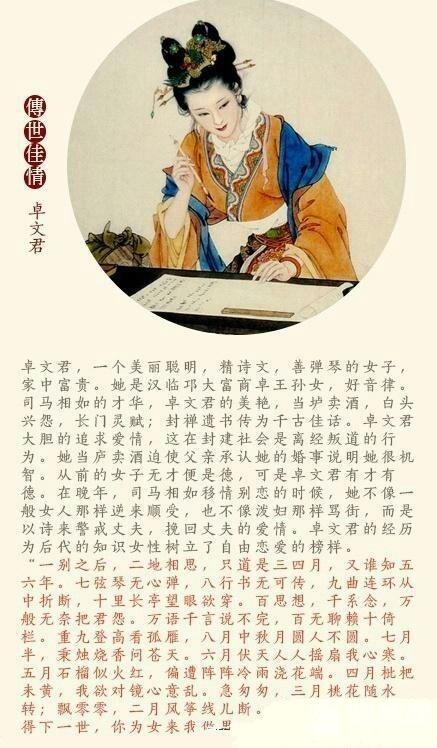 傳世佳情
卓文君
卓文君，一个美丽聪明，精诗文，善弹琴的女子，
家中富贵。她是汉临邛大富商卓王孙女，好音律。
司马相如的才华，卓文君的美艳，当垆卖酒，白头
兴怨，长门灵赋；封禅遗书传为千古佳话。卓文君
大胆的追求爱情，这在封建社会是离经叛道的行
为。她当庐卖酒迫使父亲承认她的婚事说明她很机
智。从前的女子无才便是德，可是卓文君有才有
德。在晚年，司马相如移情别恋的时候，她不像一
般女人那样逆来顺受，也不像泼妇那样骂街，而是
以诗来警戒丈夫，挽回丈夫的爱情。卓文君的经历
为后代的知识女性树立了自由恋爱的榜样。
“一别之后，二地相思，只道是三四月，又谁知五
六年。七弦琴无心弹，八行书无可传，九曲连环从
中折断，十里长亭望眼欲穿。百思想，千系念，万
般无奈把君怨。万语千言说不完，百无聊赖十倚
栏。重九登高看孤雁，八月中秋月圆人不圆。七月
半，秉烛烧香问苍天。六月伏天人人摇扇我心寒。
五月石榴似火红，偏遭阵阵冷雨浇花端。四月枇杷
未黄，我欲对镜心意乱。急匆匆，三月桃花随水
转；飘零零，二月风筝线儿断。
得下一世，你为女来我做男